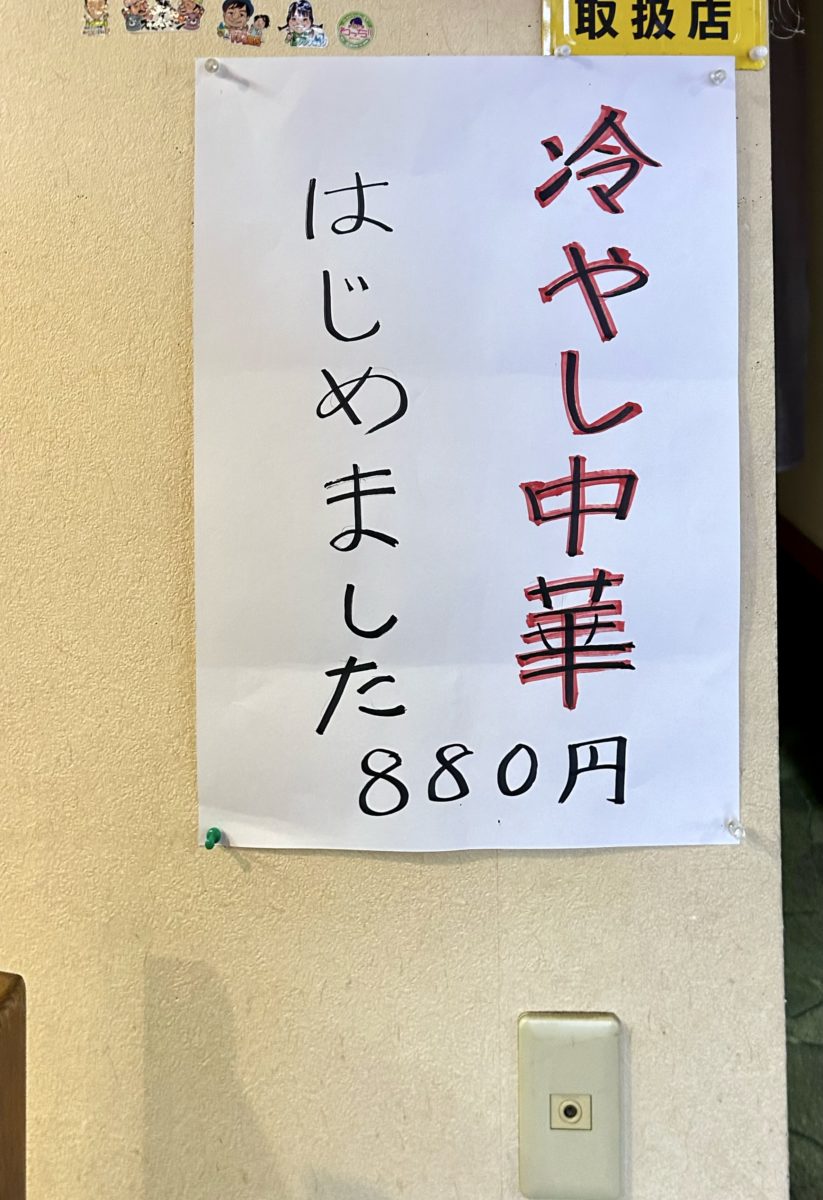 取扱店
冷やし中華
はじめました
880円